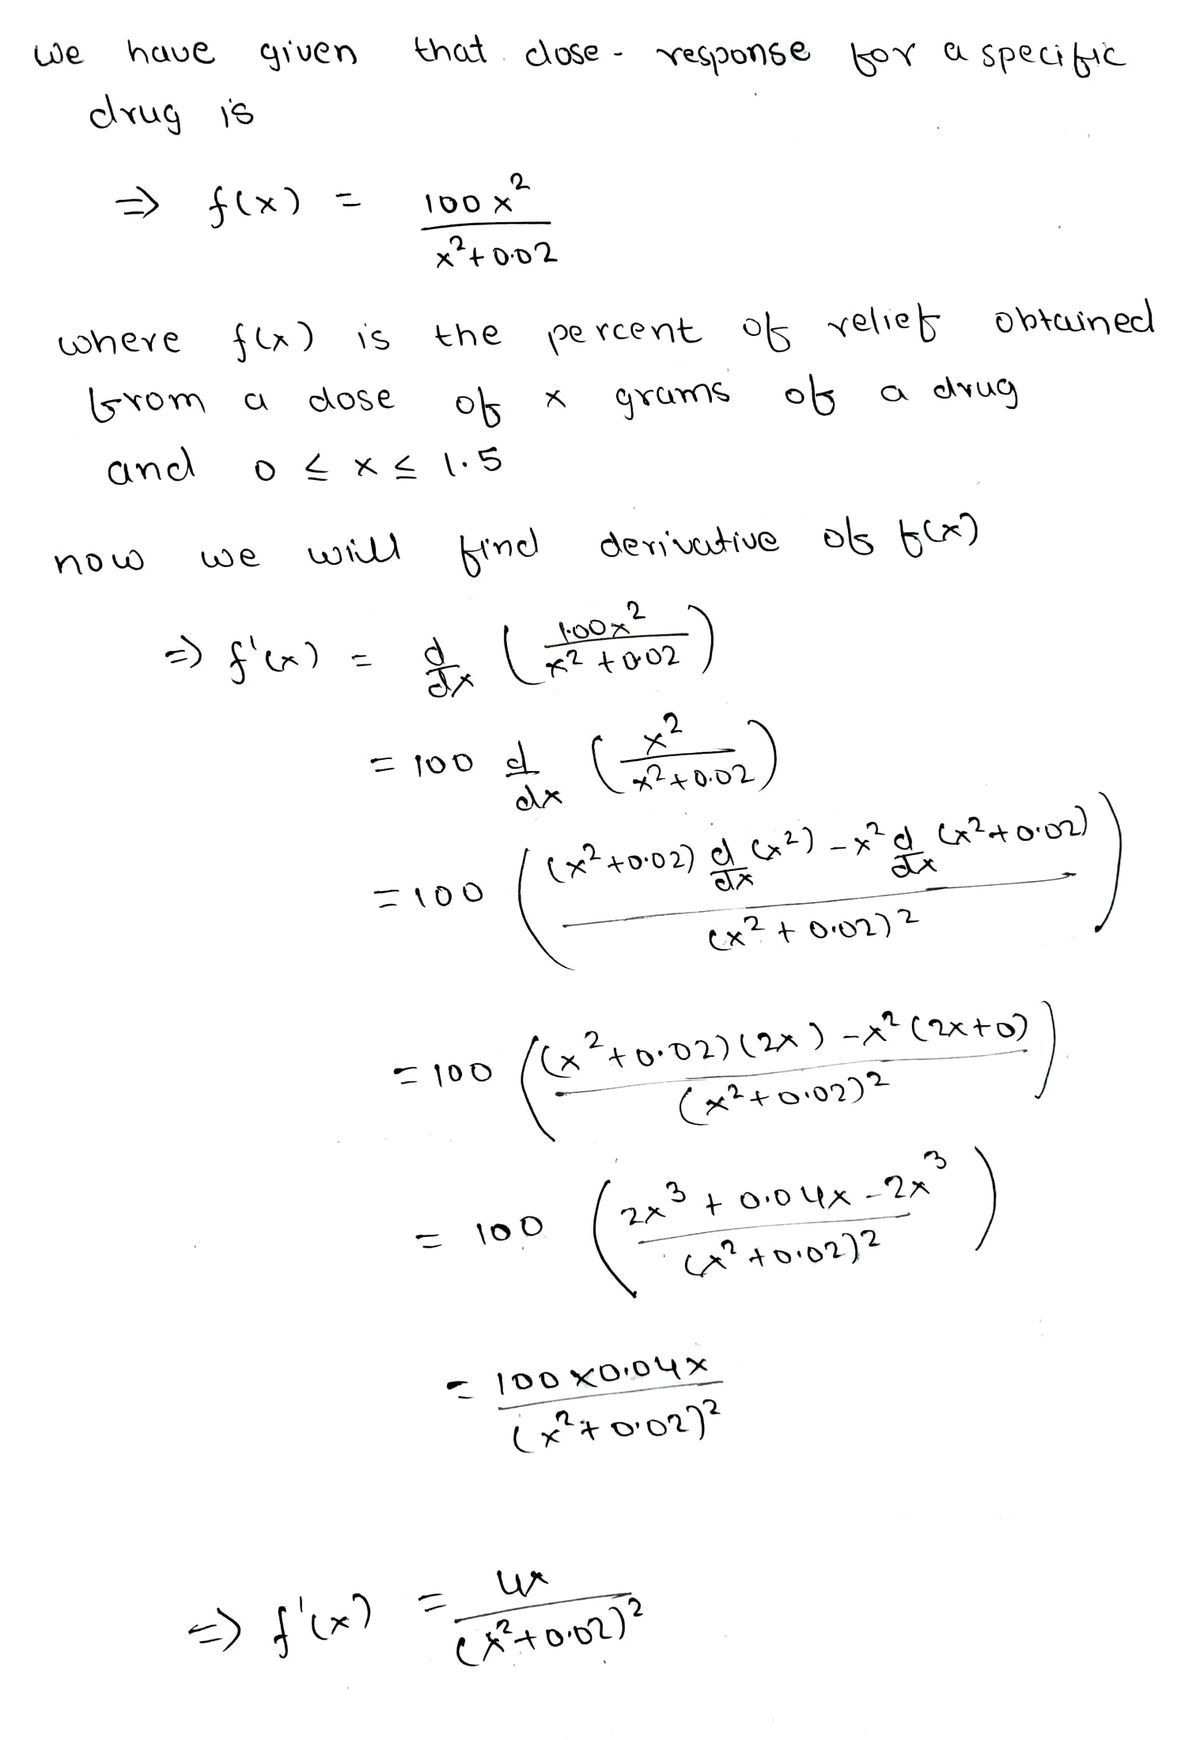 we have given that dose - response for a specific
drug is
⇒ f(x) = 100x² / x²+0.02
where f(x) is the percent of relief obtained
from a dose of x grams of a drug
and 0 ≤ x ≤ 1.5
now we will find derivative of f(x)
⇒ f'(x) = d/dx (100x² / x²+0.02)
= 100 d/dx (x² / x²+0.02)
= 100 ((x²+0.02) d/dx (x²) - x² d/dx (x²+0.02) / (x²+0.02)²)
= 100 ((x²+0.02)(2x) - x²(2x+0) / (x²+0.02)²)
= 100 (2x³ + 0.04x - 2x³ / (x²+0.02)²)
= 100×0.04x / (x²+0.02)²
⇒ f'(x) = 4x / (x²+0.02)²